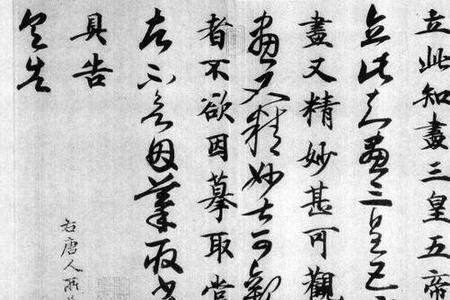 立此知畫三皇五帝
立此知畫三皇五
畫又精妙甚可觀
畫又精妙甚可觀
者不欲因摹取當
者不欲因摹取當
具告
具告
右唐人